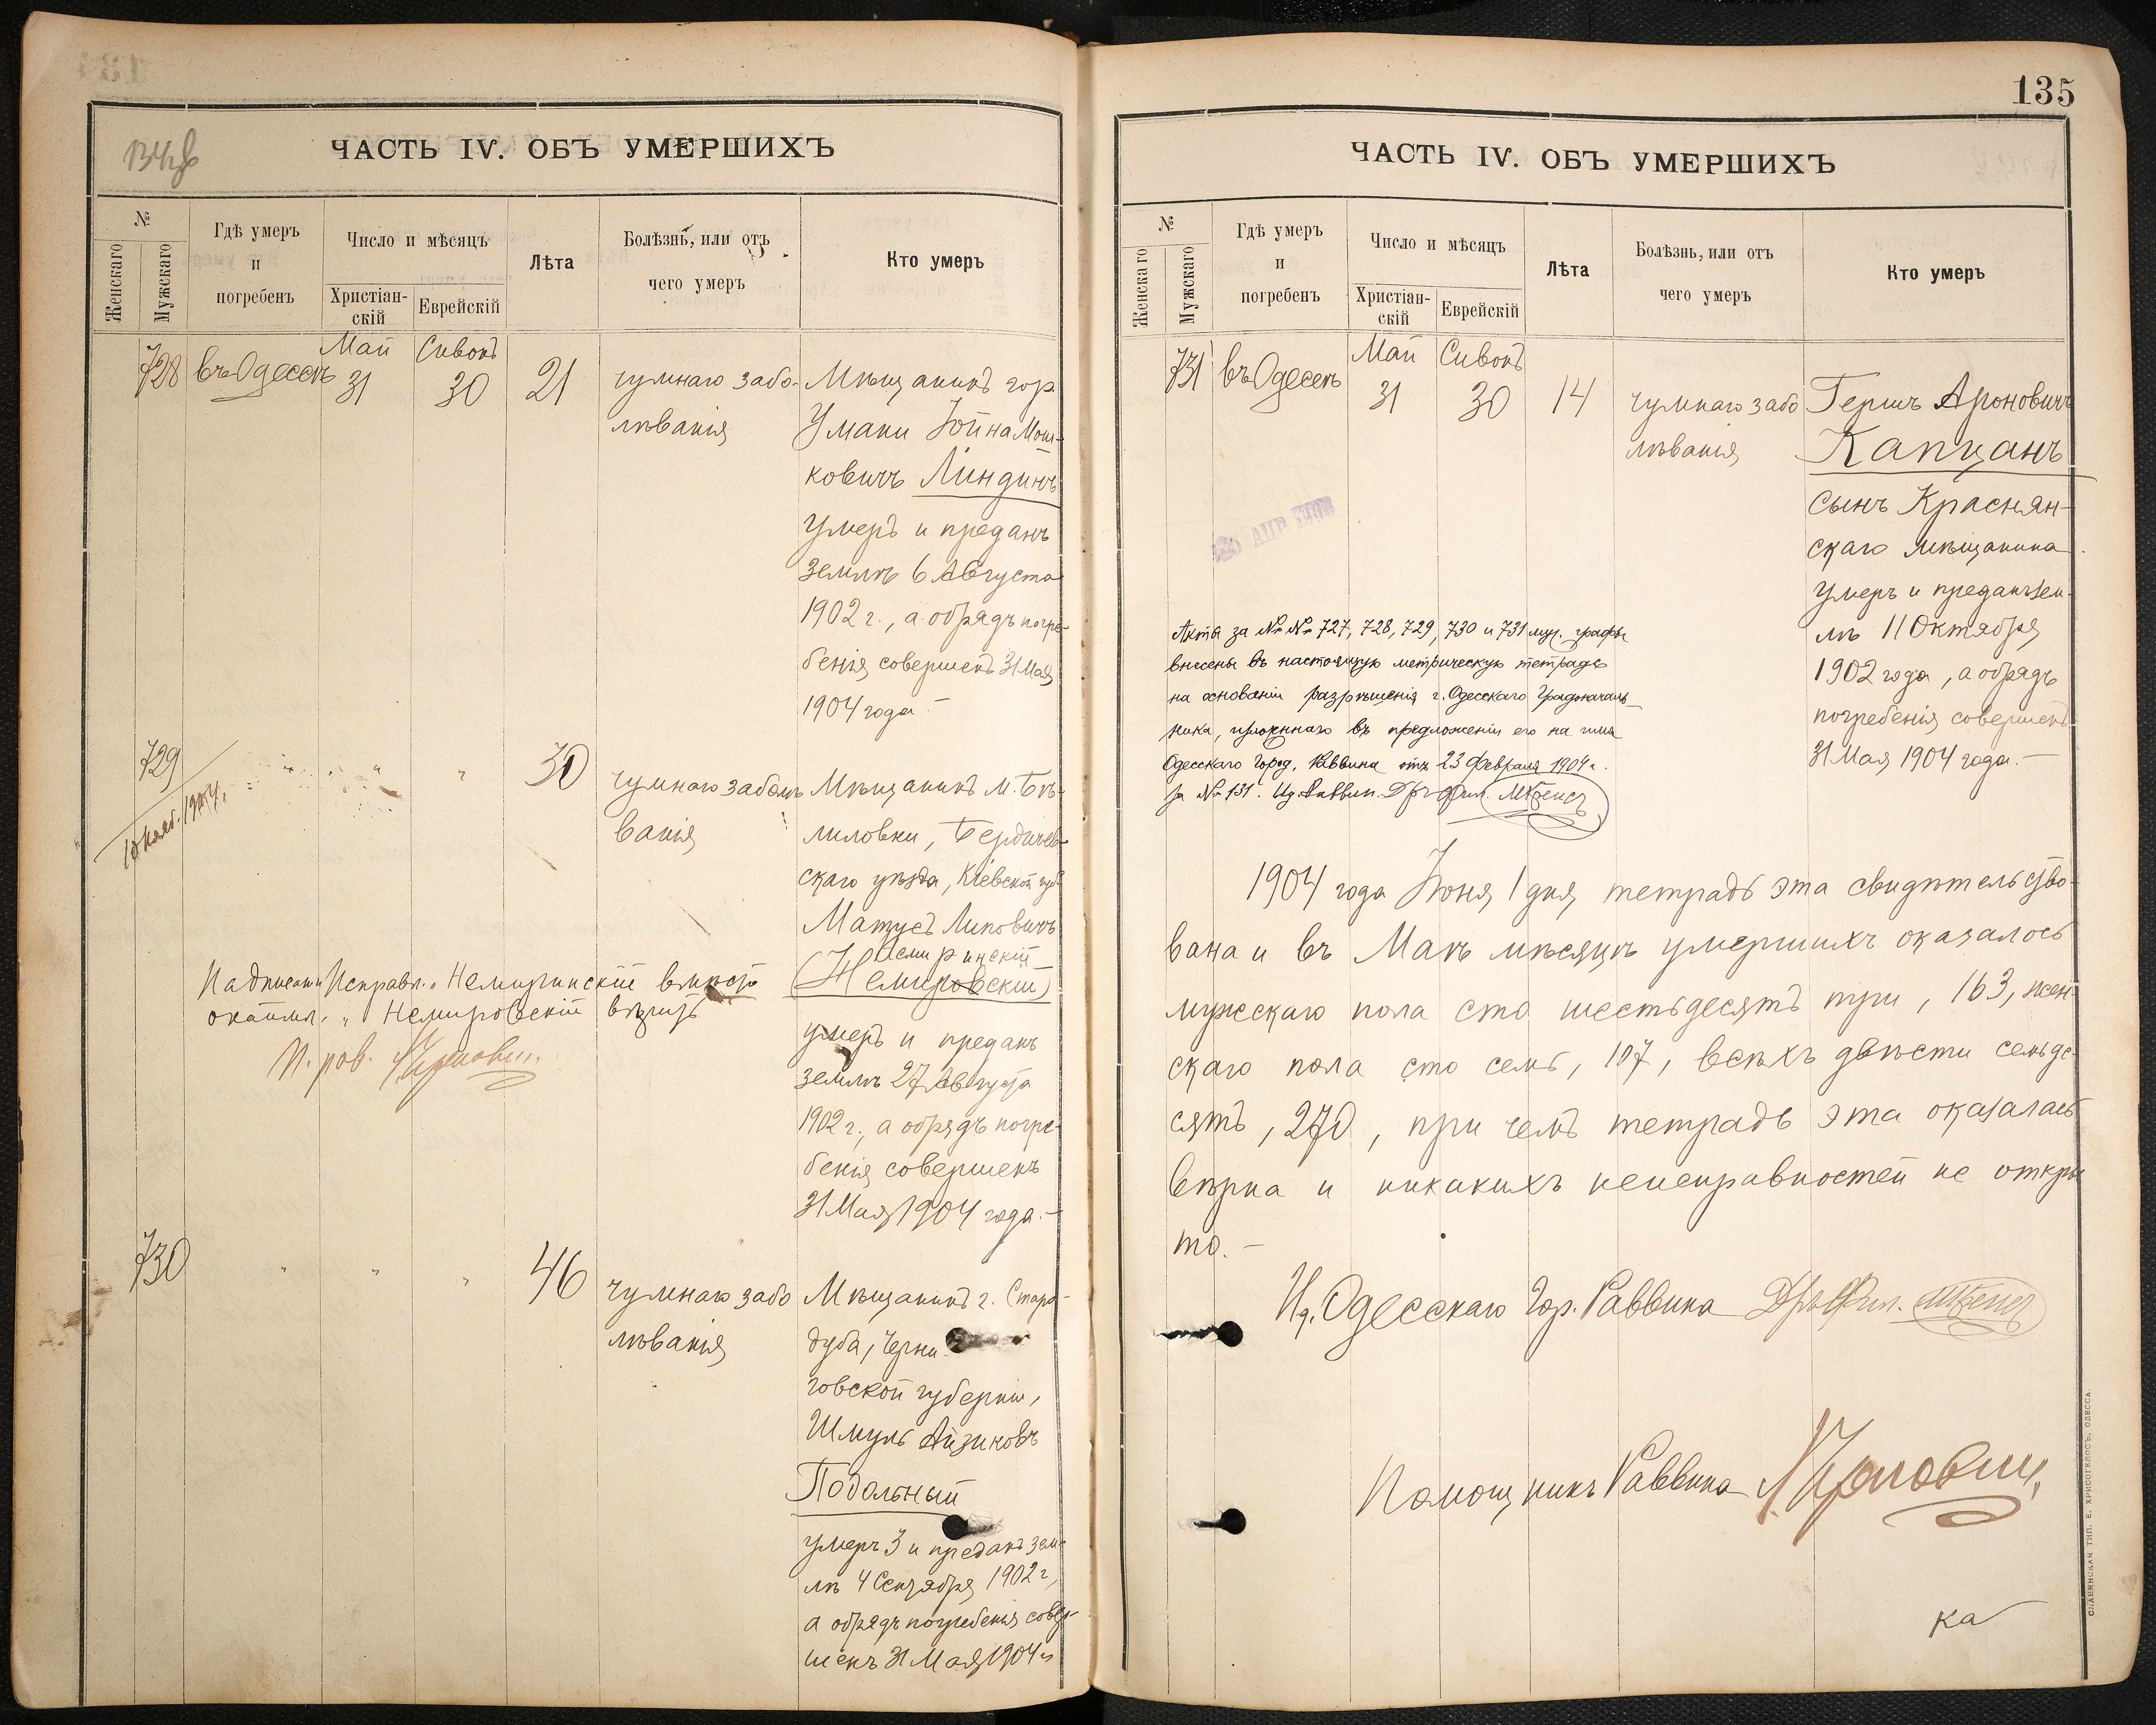 134об
ЧАСТЬ IV. ОБЪ УМЕРШИХЪ
№
Женскаго
Мужскаго
Гдѣ умеръ
и
погребенъ
Число и мѣсяцъ
Христіан-
скій
Еврейскій
Лѣта
Болѣзнь, или отъ
чего умеръ
Кто умеръ
Май Сивонъ
728 въ Одессѣ 31 30 21
чумнаго забо-
лѣванія
Мѣщанинъ гор.
Умани Іойна Мош-
ковичъ Линдинъ
умеръ и преданъ
землѣ 6 Августа
1902 г., а обрядъ погре-
бенія совершенъ 31 Мая
1904 года.—
729 " " " 30
10 нояб. 1904 г.
чумнаго заболѣ
ванія
Мѣщанинъ м. Бѣ-
лиловки, Бердичев-
скаго уѣзда, Кіевской губ.
Матусъ Липовичъ
Немиринскій
(Немировскій)
умеръ и преданъ
землѣ 27 Августа
1902 г., а обрядъ погре-
бенія совершенъ
31 Мая 1904 года.—
Надписанн. Исправл. "Немиринскій вмѣсто
окаймл. " Немировскій вѣрить
П. рав.
730 " " " 46
чумнаго забо
лѣванія
Мѣщанинъ г. Старо-
дуба, Черни-
говской губерніи,
Шмуль Айзиковъ
Подольный
умеръ 3 и преданъ зем-
лѣ 4 Сентября 1902 г,
а обрядъ погребенія совер-
шенъ 31 Мая 1904 г.
135
ЧАСТЬ IV. ОБЪ УМЕРШИХЪ
№
Женскаго
Мужскаго
Гдѣ умеръ
и
погребенъ
Число и мѣсяцъ
Христіан-
скій
Еврейскій
Лѣта
Болѣзнь, или отъ
чего умеръ
Кто умеръ
Май Сивонъ
731 въ Одессѣ 31 30 14
чумнаго забо
лѣванія
Гершъ Ароновичъ
Капцанъ
сынъ Краснян-
скаго мѣщанина
умеръ и преданъ зем-
лѣ 11 Октября
1902 года, а обрядъ
погребенія совершенъ
31 Мая 1904 года.—
АПР 1908
Акты за №№ 727, 728, 729, 730 и 731 муж. графы
внесены въ настоящую метрическую тетрадь
на основаніи разрѣшенія г. Одесскаго Градоначаль-
ника, изложеннаго въ предложеніи его на имя
Одесскаго Город. Раввина отъ 23 Февраля 1904 г.
за № 131. Ид. Раввин. Дръ Фил.
1904 года Іюня 1 дня тетрадь эта свидѣтельство-
вана и въ Маѣ мѣсяцѣ умершихъ оказалось
мужескаго пола сто шестьдесятъ три, 163, жен-
скаго пола сто семь, 107, всѣхъ двѣсти семьде-
сятъ, 270, при чемъ тетрадь эта оказалась
вѣрна и никакихъ неисправностей не откры
то.—
Ид. Одесскаго Гор. Раввина Дръ Фил.
Помощникъ Раввина
ка
СЛАВЯНСКАЯ ТИП. Е. ХРИСОГЕЛОСЪ, ОДЕССА